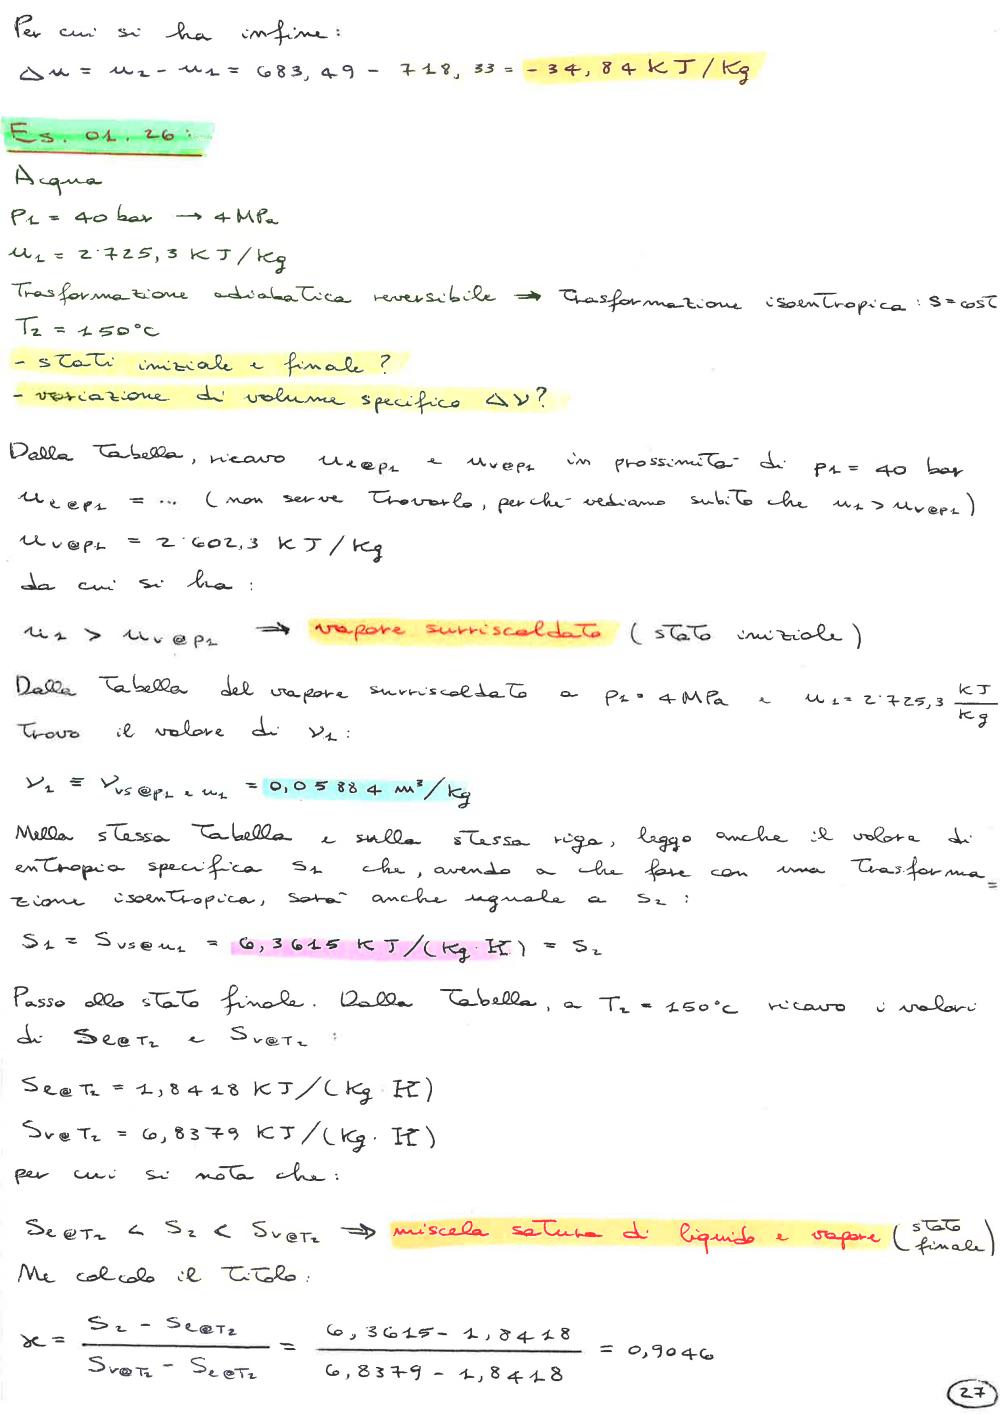 Per cui si ha infine:
Δu = u₂ - u₁ = 683,49 - 718,33 = -34,84 KJ/Kg
Es. 01.26:
Acqua
P₁ = 40 bar → 4 MPa
u₁ = 2'725,3 KJ/Kg
Trasformazione adiabatica reversibile → trasformazione isoentropica: S = cost
T₂ = 150°C
- stati iniziale e finale?
- variazione di volume specifico Δν?
Dalla Tabella, ricavo uℓ@p₁ e uv@p₁ in prossimità di p₁ = 40 bar
uℓ@p₁ = ... (non serve trovarlo, perché vediamo subito che u₁ > uv@p₁)
uv@p₁ = 2'602,3 KJ/Kg
da cui si ha:
u₁ > uv@p₁ → vapore surriscaldato (stato iniziale)
Dalla Tabella del vapore surriscaldato a p₁ = 4 MPa e u₁ = 2'725,3 KJ/Kg
trovo il valore di ν₁:
ν₁ ≡ νvs@p₁ e u₁ = 0,05884 m³/Kg
Nella stessa Tabella e sulla stessa riga, leggo anche il valore di
entropia specifica S₁ che, avendo a che fare con una trasforma=
zione isoentropica, sarà anche uguale a S₂:
S₁ = Svs@u₁ = 6,3615 KJ/(Kg·K) = S₂
Passo allo stato finale. Dalla Tabella, a T₂ = 150°C ricavo i valori
di Sℓ@T₂ e Sv@T₂:
Sℓ@T₂ = 1,8418 KJ/(Kg·K)
Sv@T₂ = 6,8379 KJ/(Kg·K)
per cui si nota che:
Sℓ@T₂ < S₂ < Sv@T₂ → miscela satura di liquido e vapore (stato finale)
Me calcolo il titolo:
x = (S₂ - Sℓ@T₂)/(Sv@T₂ - Sℓ@T₂) = (6,3615 - 1,8418)/(6,8379 - 1,8418) = 0,9046
27